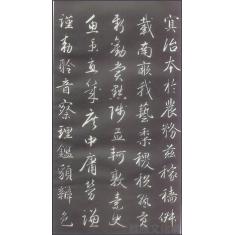 寔治本於農務茲稼穡俶
載南畝我藝黍稷稅熟貢
新勸賞黜陟孟軻敦素史
魚秉直幾庶中庸勞謙
謹勑聆音察理鑑貌辯色